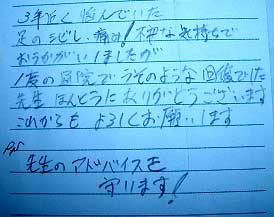 3年近く悩んでいた
足のシビレ、痛み! 不安な気持ちで
おうかがいしましたが
1度の来院でうそのような回復でした
先生ほんとうにありがとうございます
これからもよろしくお願いします
P.S
先生のアドバイスを
守ります!